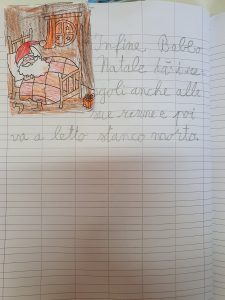 Infine, Babbo
Natale dà i re-
goli anche alle
sue renne e poi
va a letto stanco morto.